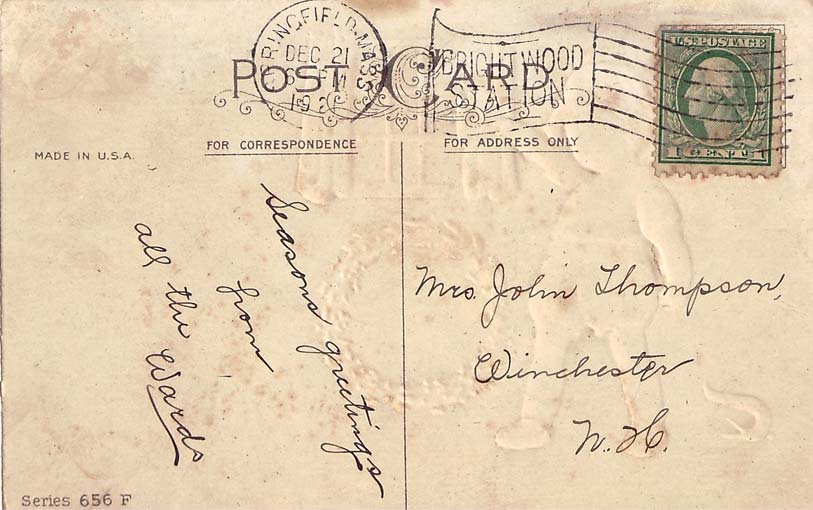 SPRINGFIELD, MASS.
DEC 21
192
BRIGHTWOOD
STATION
U.S. POSTAGE
1 CENT 1
POST CARD
FOR CORRESPONDENCE
FOR ADDRESS ONLY
MADE IN U.S.A.
Seasons greetings
from
all the Wards
Mrs. John Thompson,
Winchester
N. H.
Series 656 F